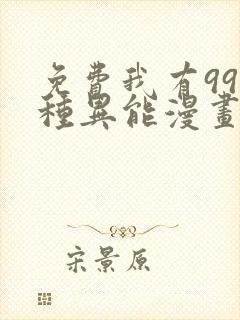 免費我有99
種異能漫畫
宋景原